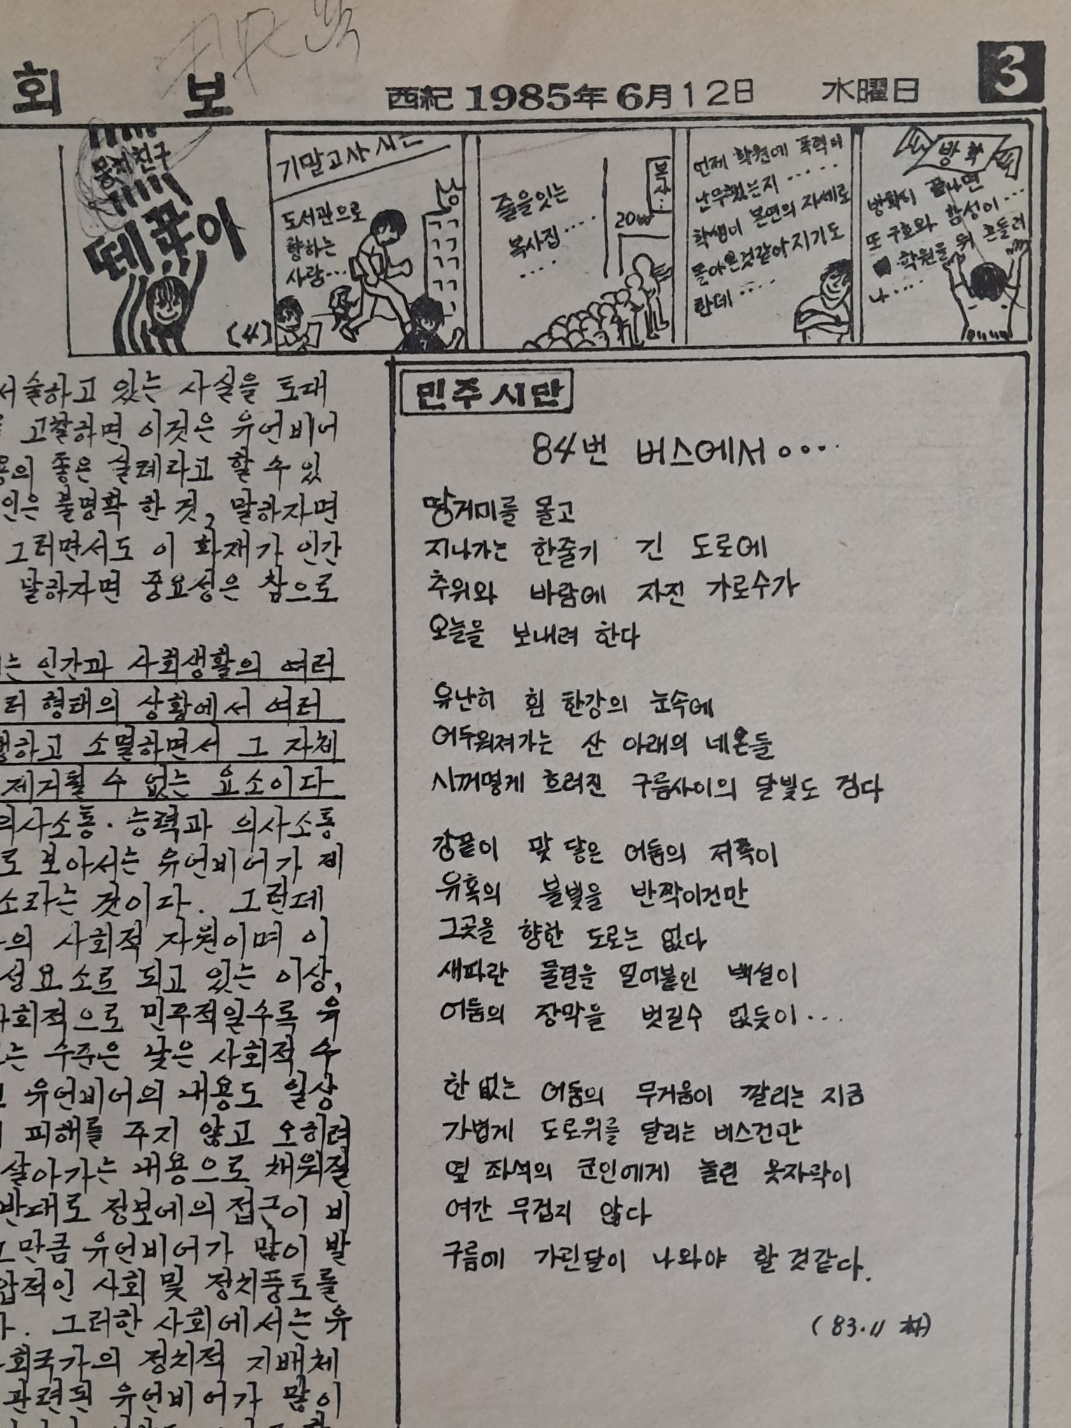 회 보 西紀 1985年 6月 12日 水曜日 3
몽치친구
떼꾼아
(4)
기말고사 시즌
도서관으로
향하는
사람...
줄을잇는
복사집....
....
복사..
20
언제 학원에 폭력이
난무했는지 .....
학생이 본연의 자세로
돌아온것같아지기도
한데 ....
방학
방학이 끝나면 ...
또 구호와 함성이...
학원을 뒤 흔들려
나....
서술하고 있는 사실을 토대
고찰하면 이것은 유언비어
용의 좋은 실례라고 할 수 있
인은 불명확 한 것, 말하자면
그러면서도 이 화재가 인간
말하자면 중요성은 참으로
는 인간과 사회생활의 여러
러 형태의 상황에서 여러
생하고 소멸하면서 그 자체
제거될 수 없는 요소이다
의사소통·능력과 의사소통
로 보아서는 유언비어가 제
소라는 것이다. 그런데
의 사회적 자원이며 이
성요소로 되고 있는 이상,
사회적으로 민주적일수록 유
는 수준은 낮은 사회적 수
유언비어의 내용도 일상
피해를 주지 않고 오히려
살아가는 내용으로 채워질
반대로 정보에의 접근이 비
만큼 유언비어가 많이 발
압적인 사회 및 정치풍토를
. 그러한 사회에서는 유
회국가의 정치적 지배체
관련된 유언비어가 많이
민주시단
84번 버스에서 ....
땅거미를 몰고
지나가는 한줄기 긴 도로에
추위와 바람에 자진 가로수가
오늘을 보내려 한다
유난히 흰 한강의 눈속에
어두워져가는 산 아래의 네온들
시꺼멓게 흐려진 구름사이의 달빛도 검다
강끝이 맞 닿은 어둠의 저쪽이
유혹의 불빛을 반짝이건만
그곳을 향한 도로는 없다
새파란 물결을 밀어붙인 백설이
어둠의 장막을 벗길수 없듯이...
한 없는 어둠의 무거움이 깔리는 지금
가볍게 도로위를 달리는 버스건만
옆 좌석의 군인에게 눌린 옷자락이
여간 무겁지 않다
구름에 가린달이 나와야 할 것같다.
(83.11 화)